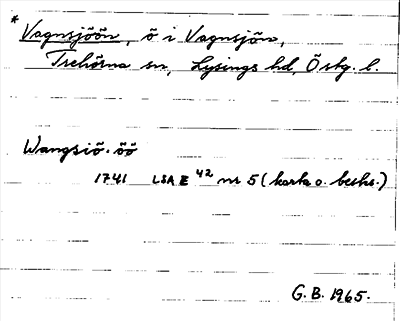 * Vagnsjöön, ö i Vagnsjön,
Trehörna sn, Lysings hd, Östg. l.
Wangsiö. öö
1741 LSA E 42 nr 5 (karta o. beskr.)
G. B. 1965.